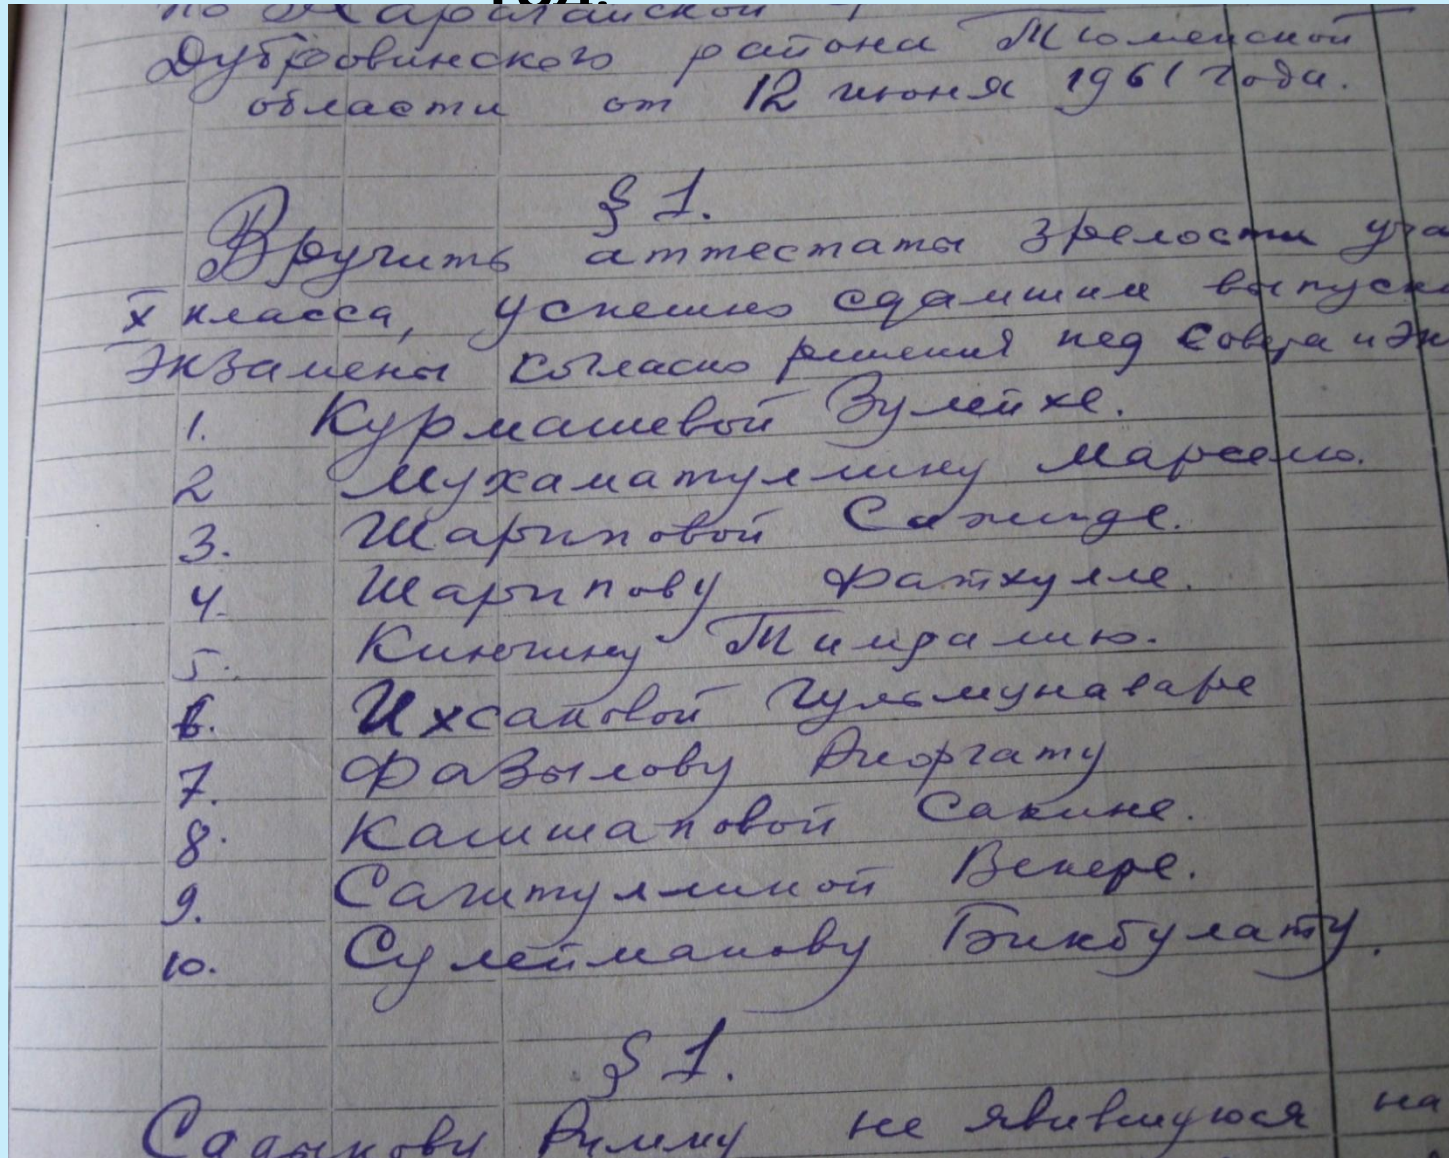 год.
по Карагайской
Дубровинского района Тюменской
области от 12 июня 1961 года.
§ 1.
Вручить аттестаты зрелости уча
X класса, успешно сдавшим выпускн
экзамены согласно решения пед совета и эк
1. Курмашевой Зулейхе.
2 Мухаматуллину Марселю.
3. Шариповой Сажиде.
4. Шарипову Фатхулле.
5. Кинчину Тимралию.
6. Ихсановой Гульмунаваре
7. Фазылову
8. Калшановой Сакине.
9. Сагитуллиной Венере.
10. Сулейманову Бикбулату.
§ 1.
Садыкову Римму не явившуюся на